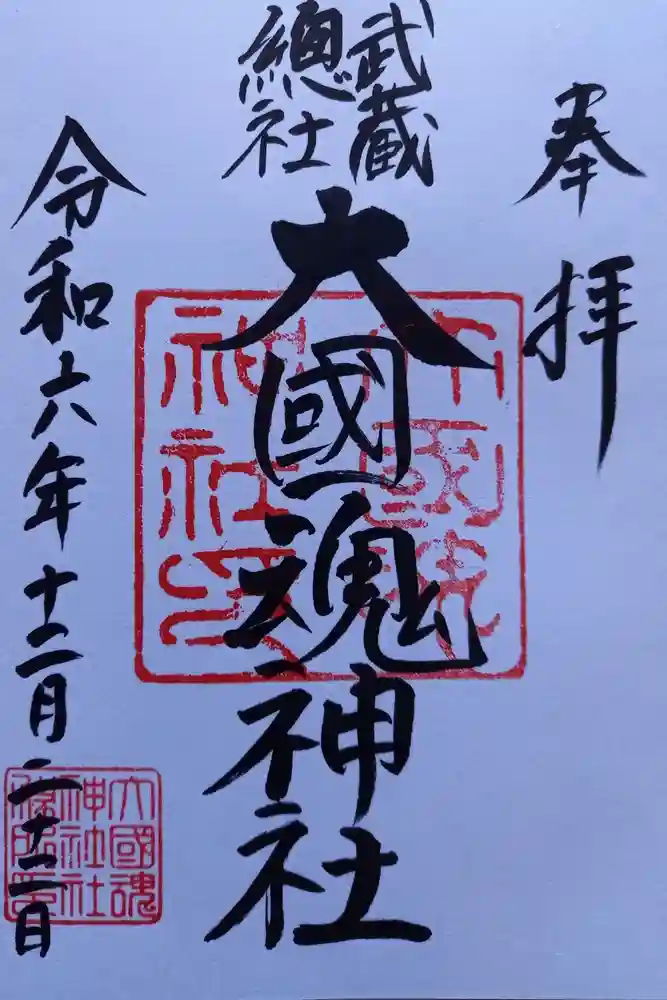 奉拝
武蔵
總社
大國魂神社
令和六年十二月二十二日
大國魂
神社社
務所印
大國魂
神社印